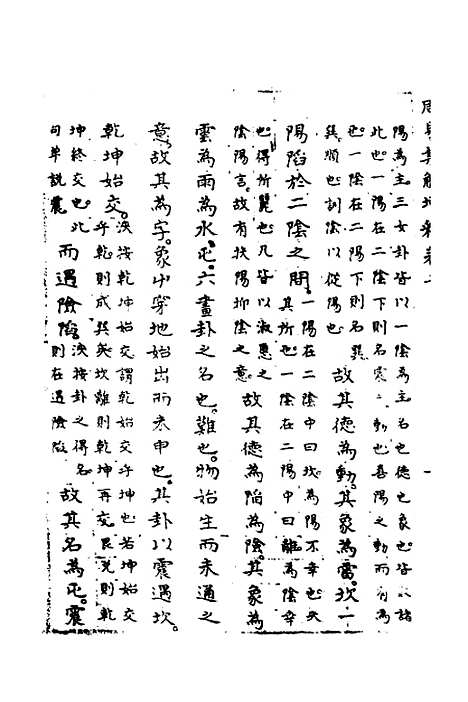 周易集解
陽為主。三女卦皆以一陰為主名也德也象也皆以諸
此也。一陽在二陰下則名震動也喜陽之動而有為
也。一陰在二陽下則名巽
巽順也訓陰以從陽也
故其德為動。其象為雷。坎一
陽陷於二陰之間。
一陽在二陰中曰坎為陽不幸也失
其所也一陰在二陽中曰離為陰幸
也得所麗也凡皆以淑慝之
陰陽言。故有扶陽抑陰之意
故其德為陷為陰。其象為
雲為雨為水。屯。六畫卦之名也。難也。物始生而未通之
意。故其為字。象屮穿地始出而未申也。其卦以震遇坎。
乾坤始交。
浹按乾坤始交謂乾始交乎坤也若坤始交
乎乾則成巽矣坎離則乾坤再交艮兌則乾
坤終交也此
句單說震
而遇險陷。
浹按卦之得名
則在遇險陷
故其名為屯。震